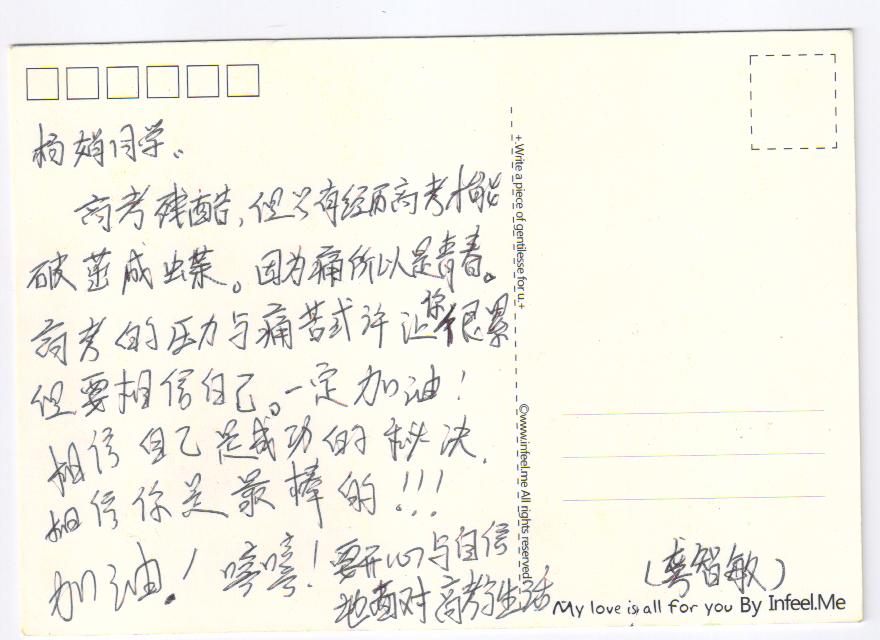 杨娟同学。
高考残酷，但只有经历高考才能
破茧成出蝶。因为痛所以是青春。
高考的压力与痛苦或许让你很累
但要相信自己。一定加油！
相信自己是成功的秘决．
相信你是最棒的!!!
加油！嘻嘻！要开心与自信
地面对高考生活
+.Write a piece of gentilesse for u.+
©www.infeel.me All rights reserved
（龚智敏）
My love is all for you By Infeel.Me